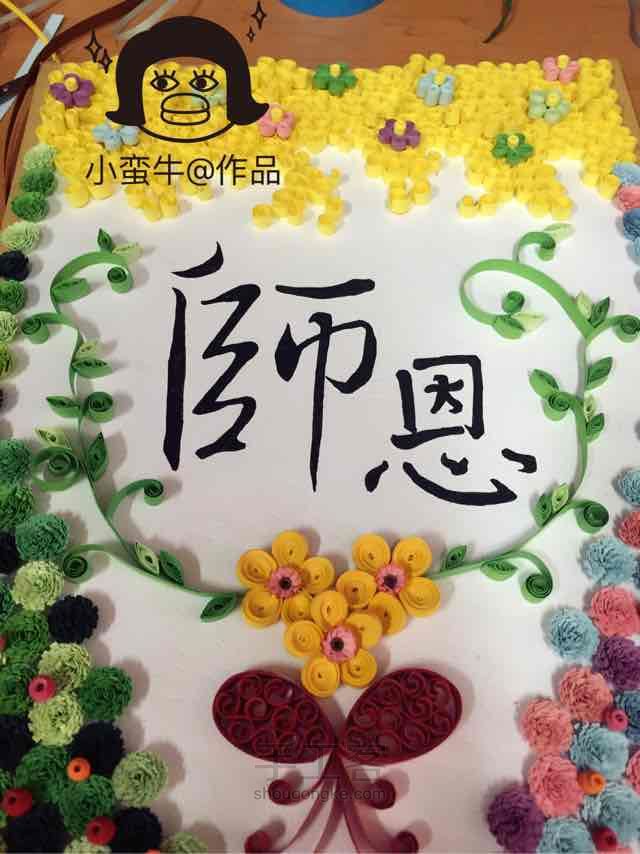 小蛮牛@作品
師恩
手工客
shougongke.com